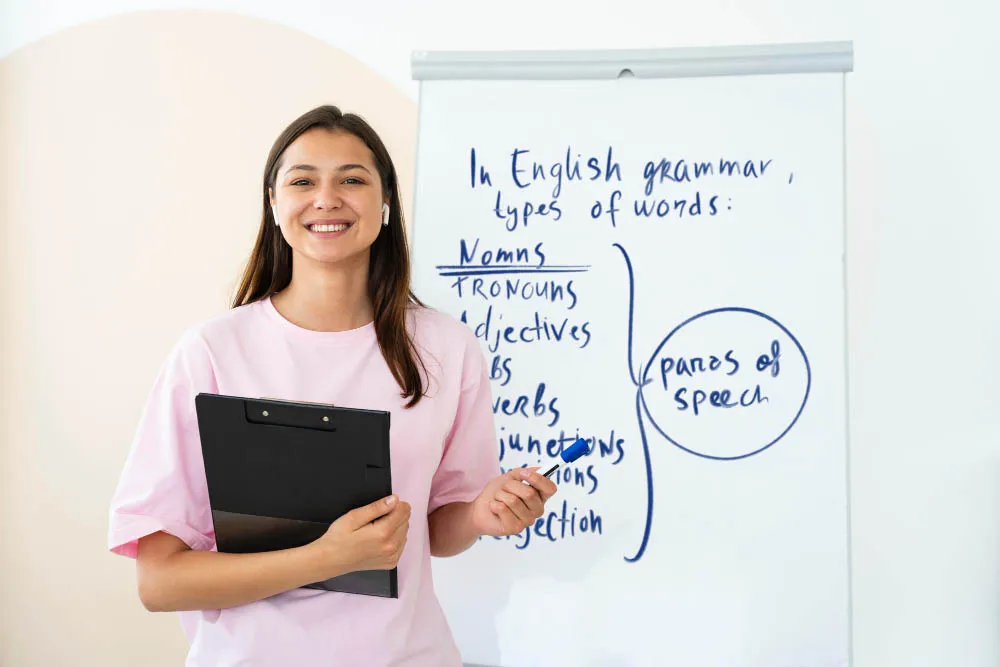 In English grammar,
types of words:
Nouns
PRONOUNS
Adjectives
bs
verbs
junctions
itions
erjection
parts of
speech